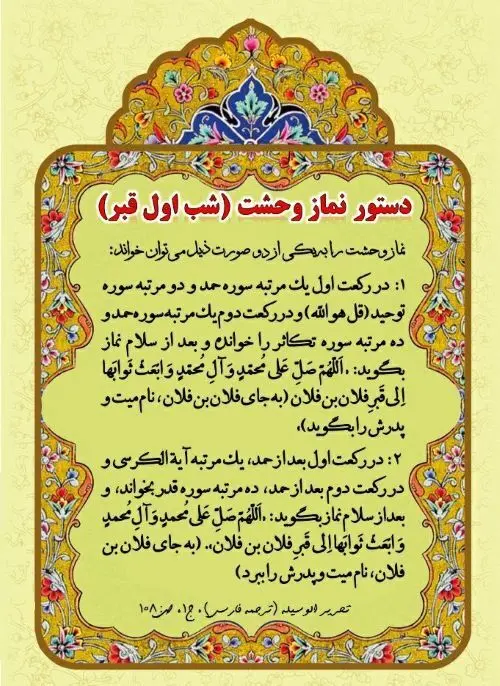 دستور نماز وحشت (شب اول قبر)
نماز وحشت را به یکی از دو صورت ذیل می‌توان خواند:
۱: در رکعت اول یک مرتبه سوره حمد و دو مرتبه سوره
توحید (قل هو الله) و در رکعت دوم یک مرتبه سوره حمد و
ده مرتبه سوره تکاثر را خوانده و بعد از سلام نماز
بگوید: «اَللّهُمَّ صَلِّ عَلی مُحمّدٍ وَ آلِ مُحمّدٍ وَ ابعَث ثَوابَها
اِلی قَبرِ فلان بن فلان (به جای فلان بن فلان، نام میت و
پدرش را بگوید)».
۲: در رکعت اول بعد از حمد، یک مرتبه آیة الکرسی و
در رکعت دوم بعد از حمد، ده مرتبه سوره قدر بخواند، و
بعد از سلام نماز بگوید: «اَللّهُمَّ صَلِّ عَلی مُحمدٍ وَ آلِ محمدٍ
وَ ابعَث ثَوابَها اِلی قَبرِ فلان بن فلان». (به جای فلان بن
فلان، نام میت و پدرش را ببرد)
تحریر الوسیله (ترجمه فارسی)، ج۱، ص ۱۰۸